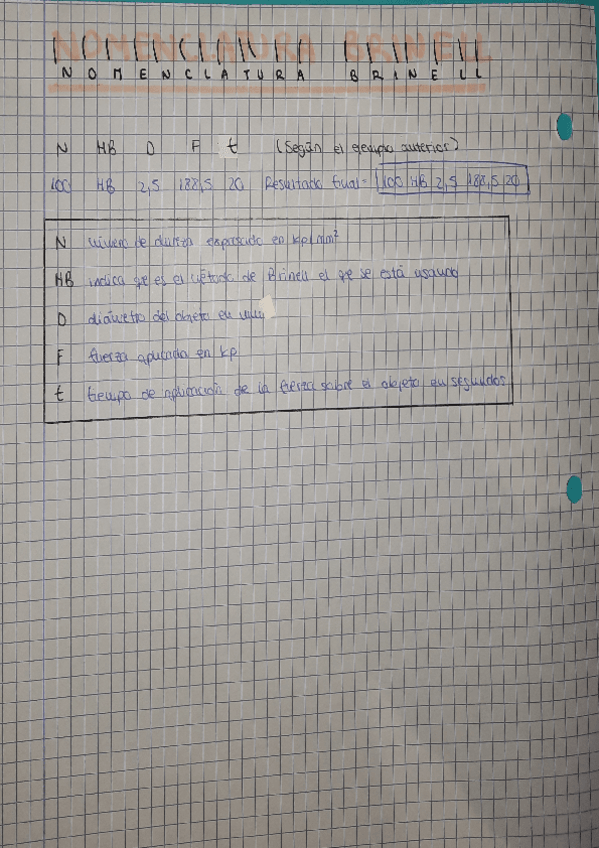 NOMENCLATURA BRINELL
NOMENCLATURA BRINELL
N HB D F t (Según el ejemplo anterior)
100 HB 2,5 187,5 20 Resultado final = 100 HB 2,5 187,5 20
N número de dureza expresado en kp/mm²
HB indica que es el método de Brinell el que se está usando
D diámetro del objeto en mm
F fuerza aplicada en kp
t tiempo de aplicación de la fuerza sobre el objeto en segundos